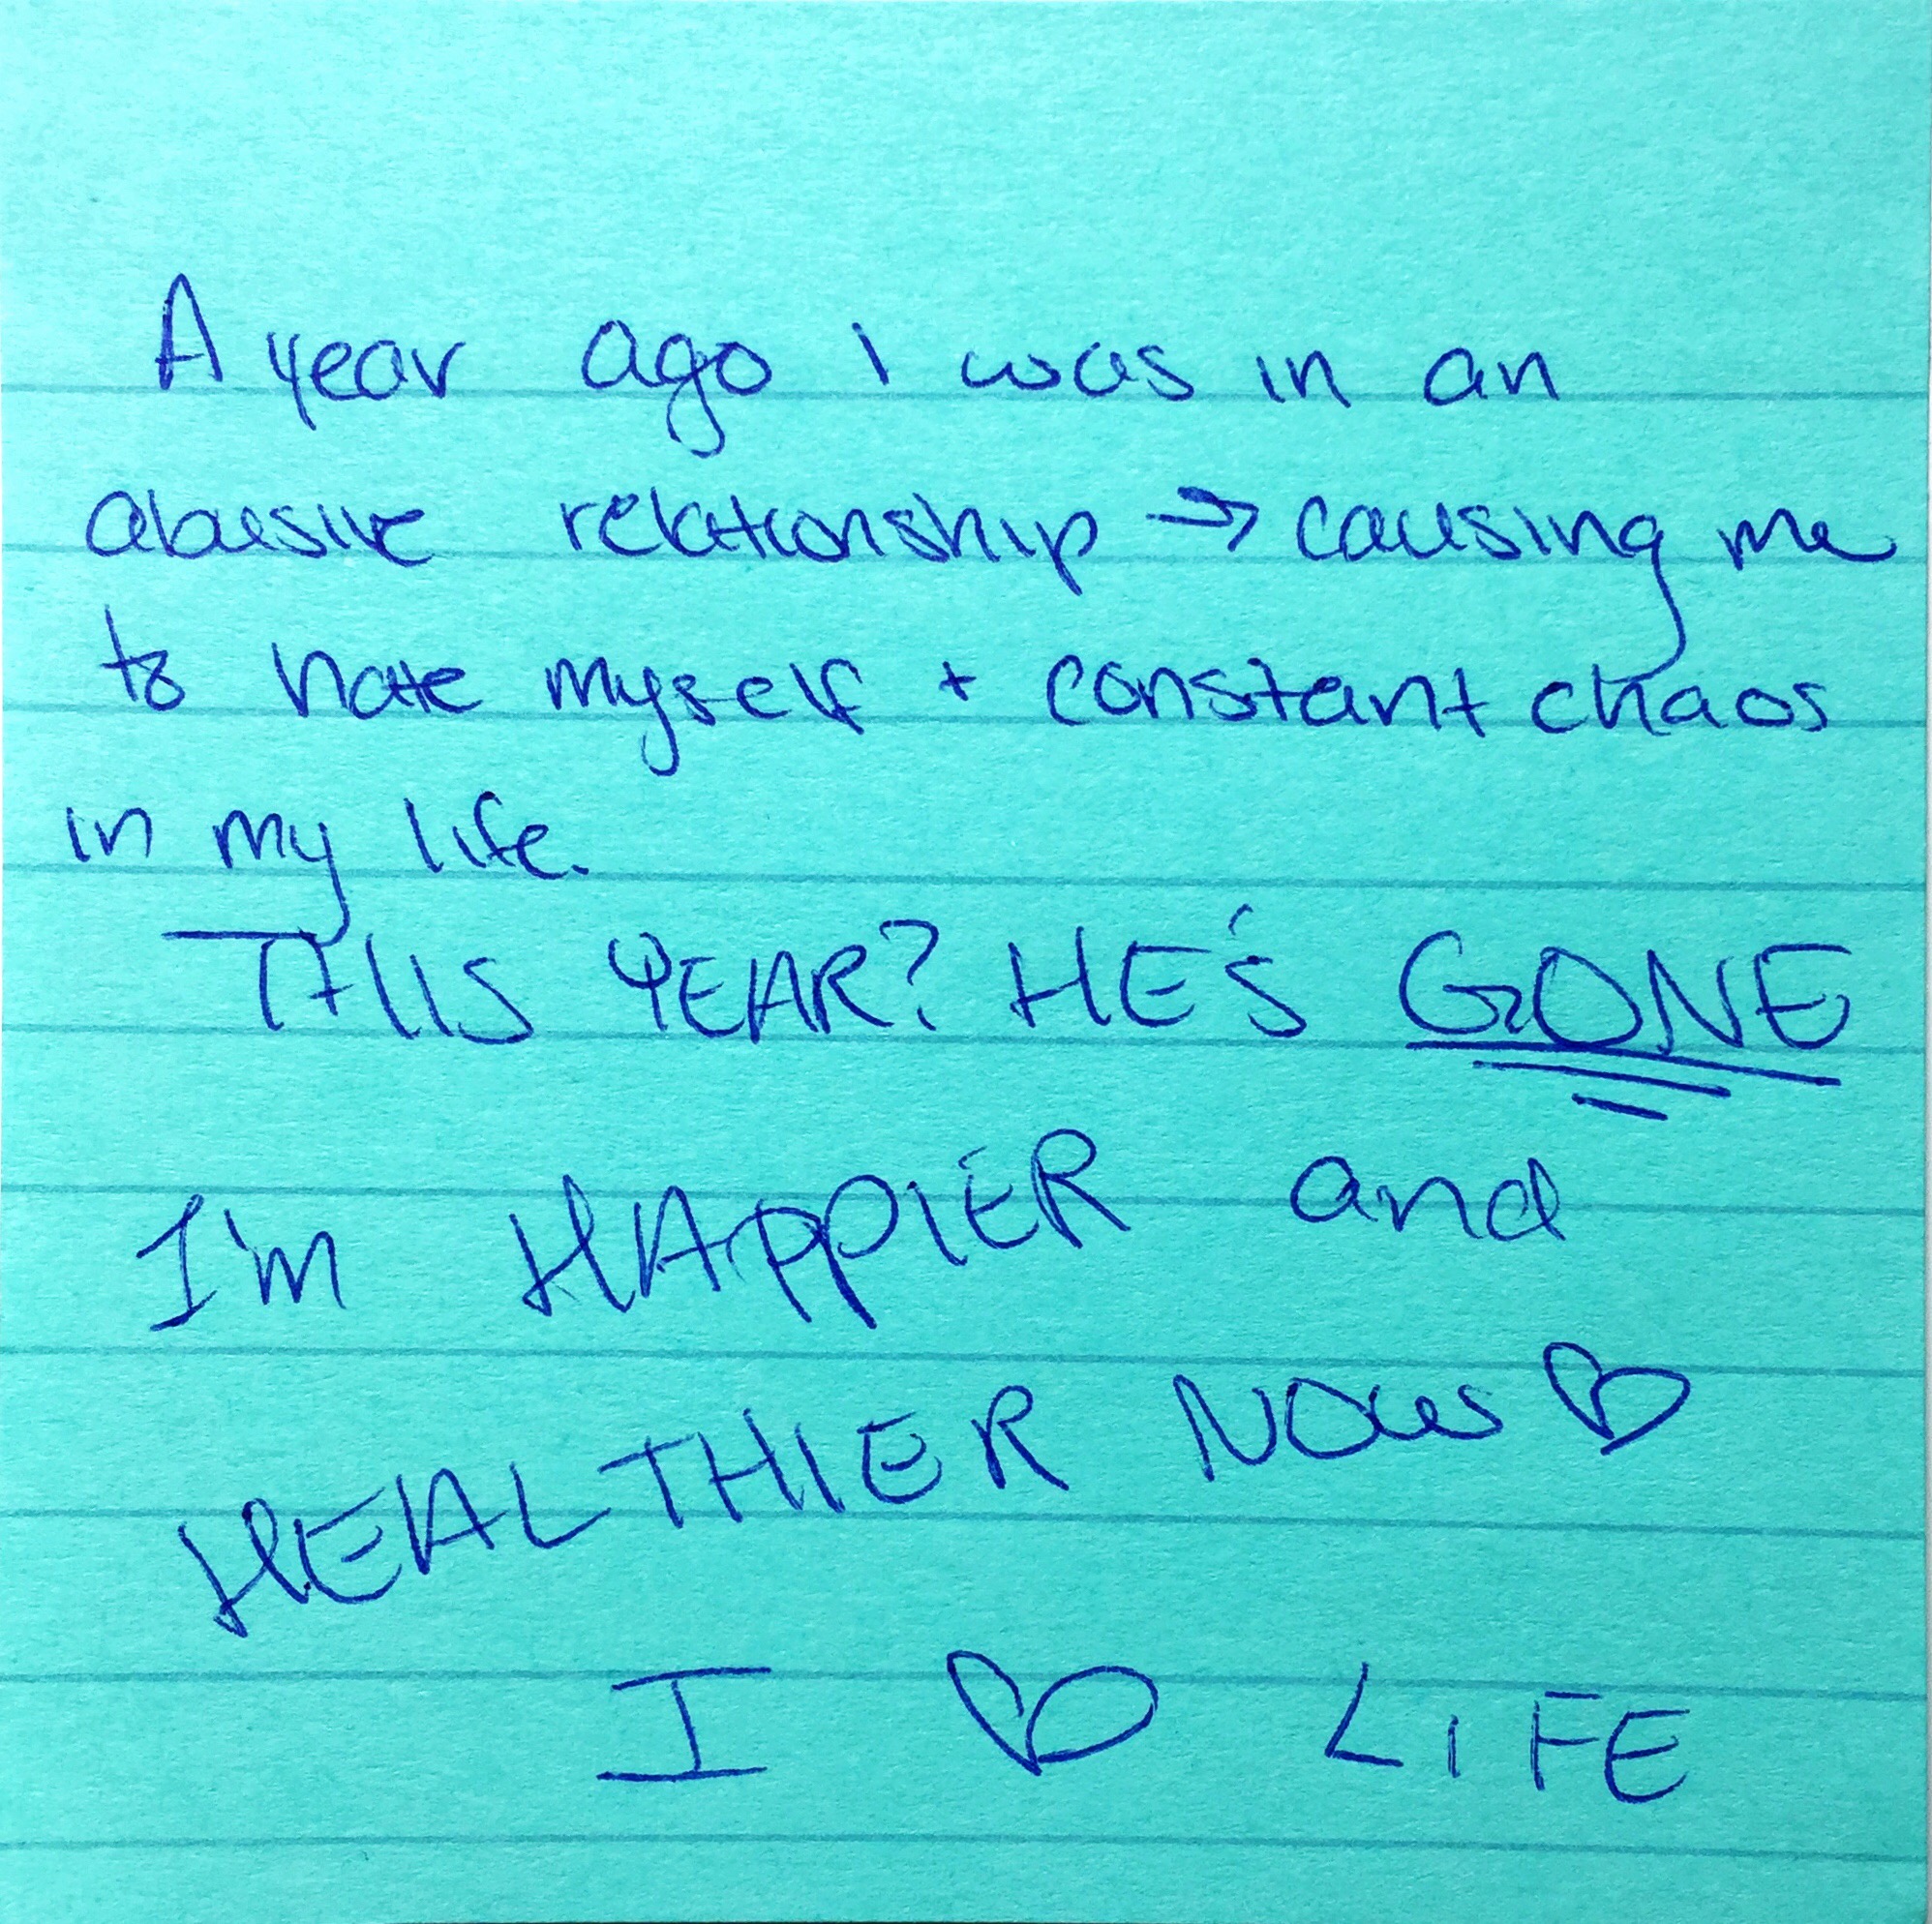 A year ago I was in an
abusive relationship → causing me
to hate myself + constant chaos
in my life.
THIS YEAR? HE'S GONE
I'm HAPPIER and
HEALTHIER NOW ♡
I ♡ LIFE